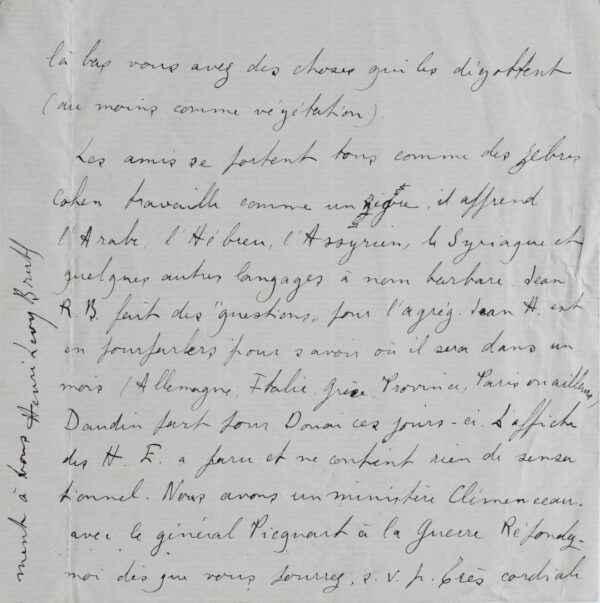 là bas vous avez des choses qui les dégottent
(au moins comme végétation)
Les amis se portent tous comme des zèbres
Cohen travaille comme un, il apprend
l'Arabe, l'Hébreu, l'Assyrien, le Syriaque et
quelques autres langages à nom barbare. Jean
R. B. fait des "questions" pour l'agrég. Jean H. est
en pourparlers pour savoir où il sera dans un
mois (Allemagne, Italie, Grèce, Province, Paris ou ailleurs)
Daudin part pour Douai ces jours-ci. L'affiche
des H. E. a paru et ne contient rien de sensa
tionnel. Nous avons un ministère Clémenceau.
avec le général Picquart à la Guerre Répondez-
moi dès que vous pourrez, s. v. p. très cordiale
ment à vous Henri Levy Bruhl